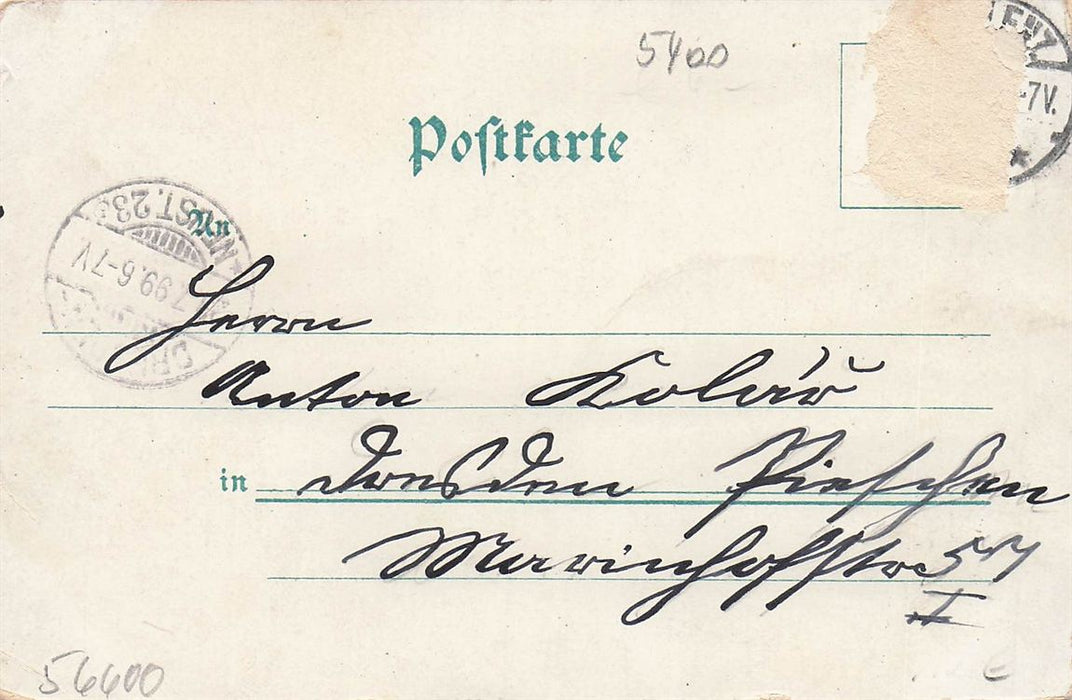 5400
Postkarte
ENZ
-7V.
NEUST. 23
7 99. 6-7 V
An
Herrn
Anton Kolář
in Dresden Pieschen
Marienhofstr 54
I
56600